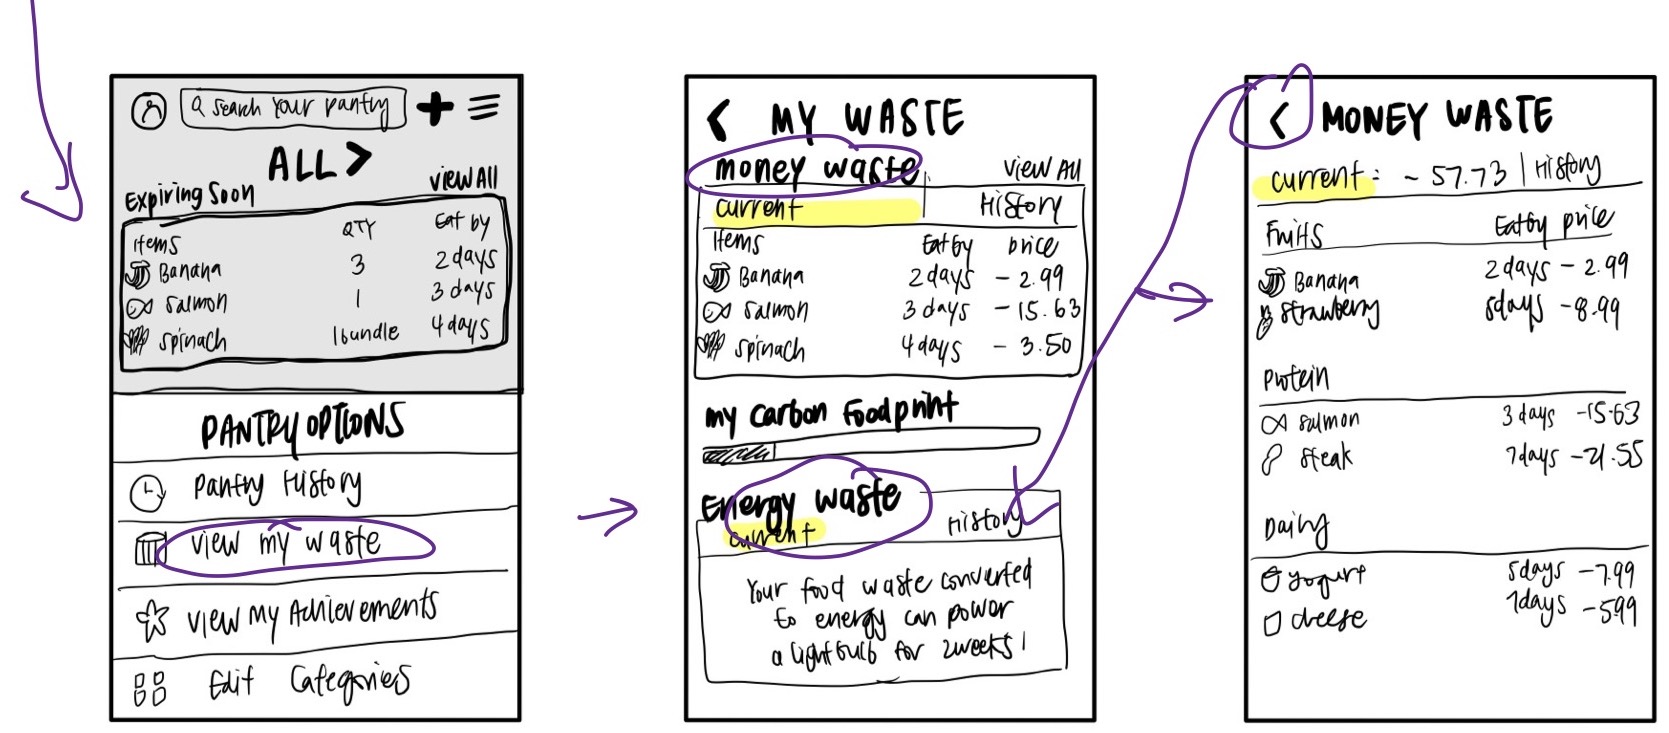 Search Your Pantry
ALL >
Expiring Soon View All
Items QTY Eat by
Banana 3 2 days
Salmon 1 3 days
Spinach 1 bundle 4 days
PANTRY OPTIONS
Pantry History
View my waste
View My Achievements
Edit Categories
< MY WASTE
money waste View All
current History
Items Eat by price
Banana 2 days - 2.99
Salmon 3 days - 15.63
Spinach 4 days - 3.50
my Carbon Foodprint
Energy waste
current History
Your food waste converted
to energy can power
a lightbulb for 2 weeks!
< MONEY WASTE
current: ~ 57.73 | History
Fruits Eat by price
Banana 2 days - 2.99
Strawberry 5 days - 8.99
Protein
Salmon 3 days - 15.63
Steak 7 days - 21.55
Dairy
yogurt 5 days - 7.99
cheese 7 days - 5.99